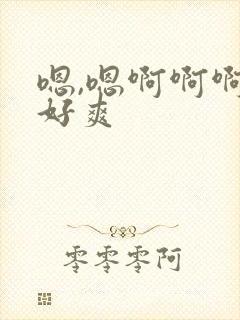 嗯,嗯啊啊啊
好爽
零零零阿